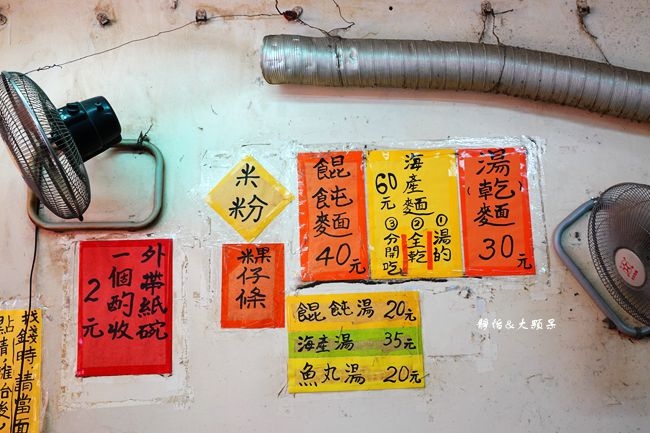 湯
乾
麵
30元
海產麵
60元
①湯的
②全乾
③分開吃
餛飩麵
40元
米粉
粿仔條
餛飩湯 20元
海產湯 35元
魚丸湯 20元
外帶紙碗
一個酌收
2元
找錢時請當面
點清離台後
靜怡&大顆呆